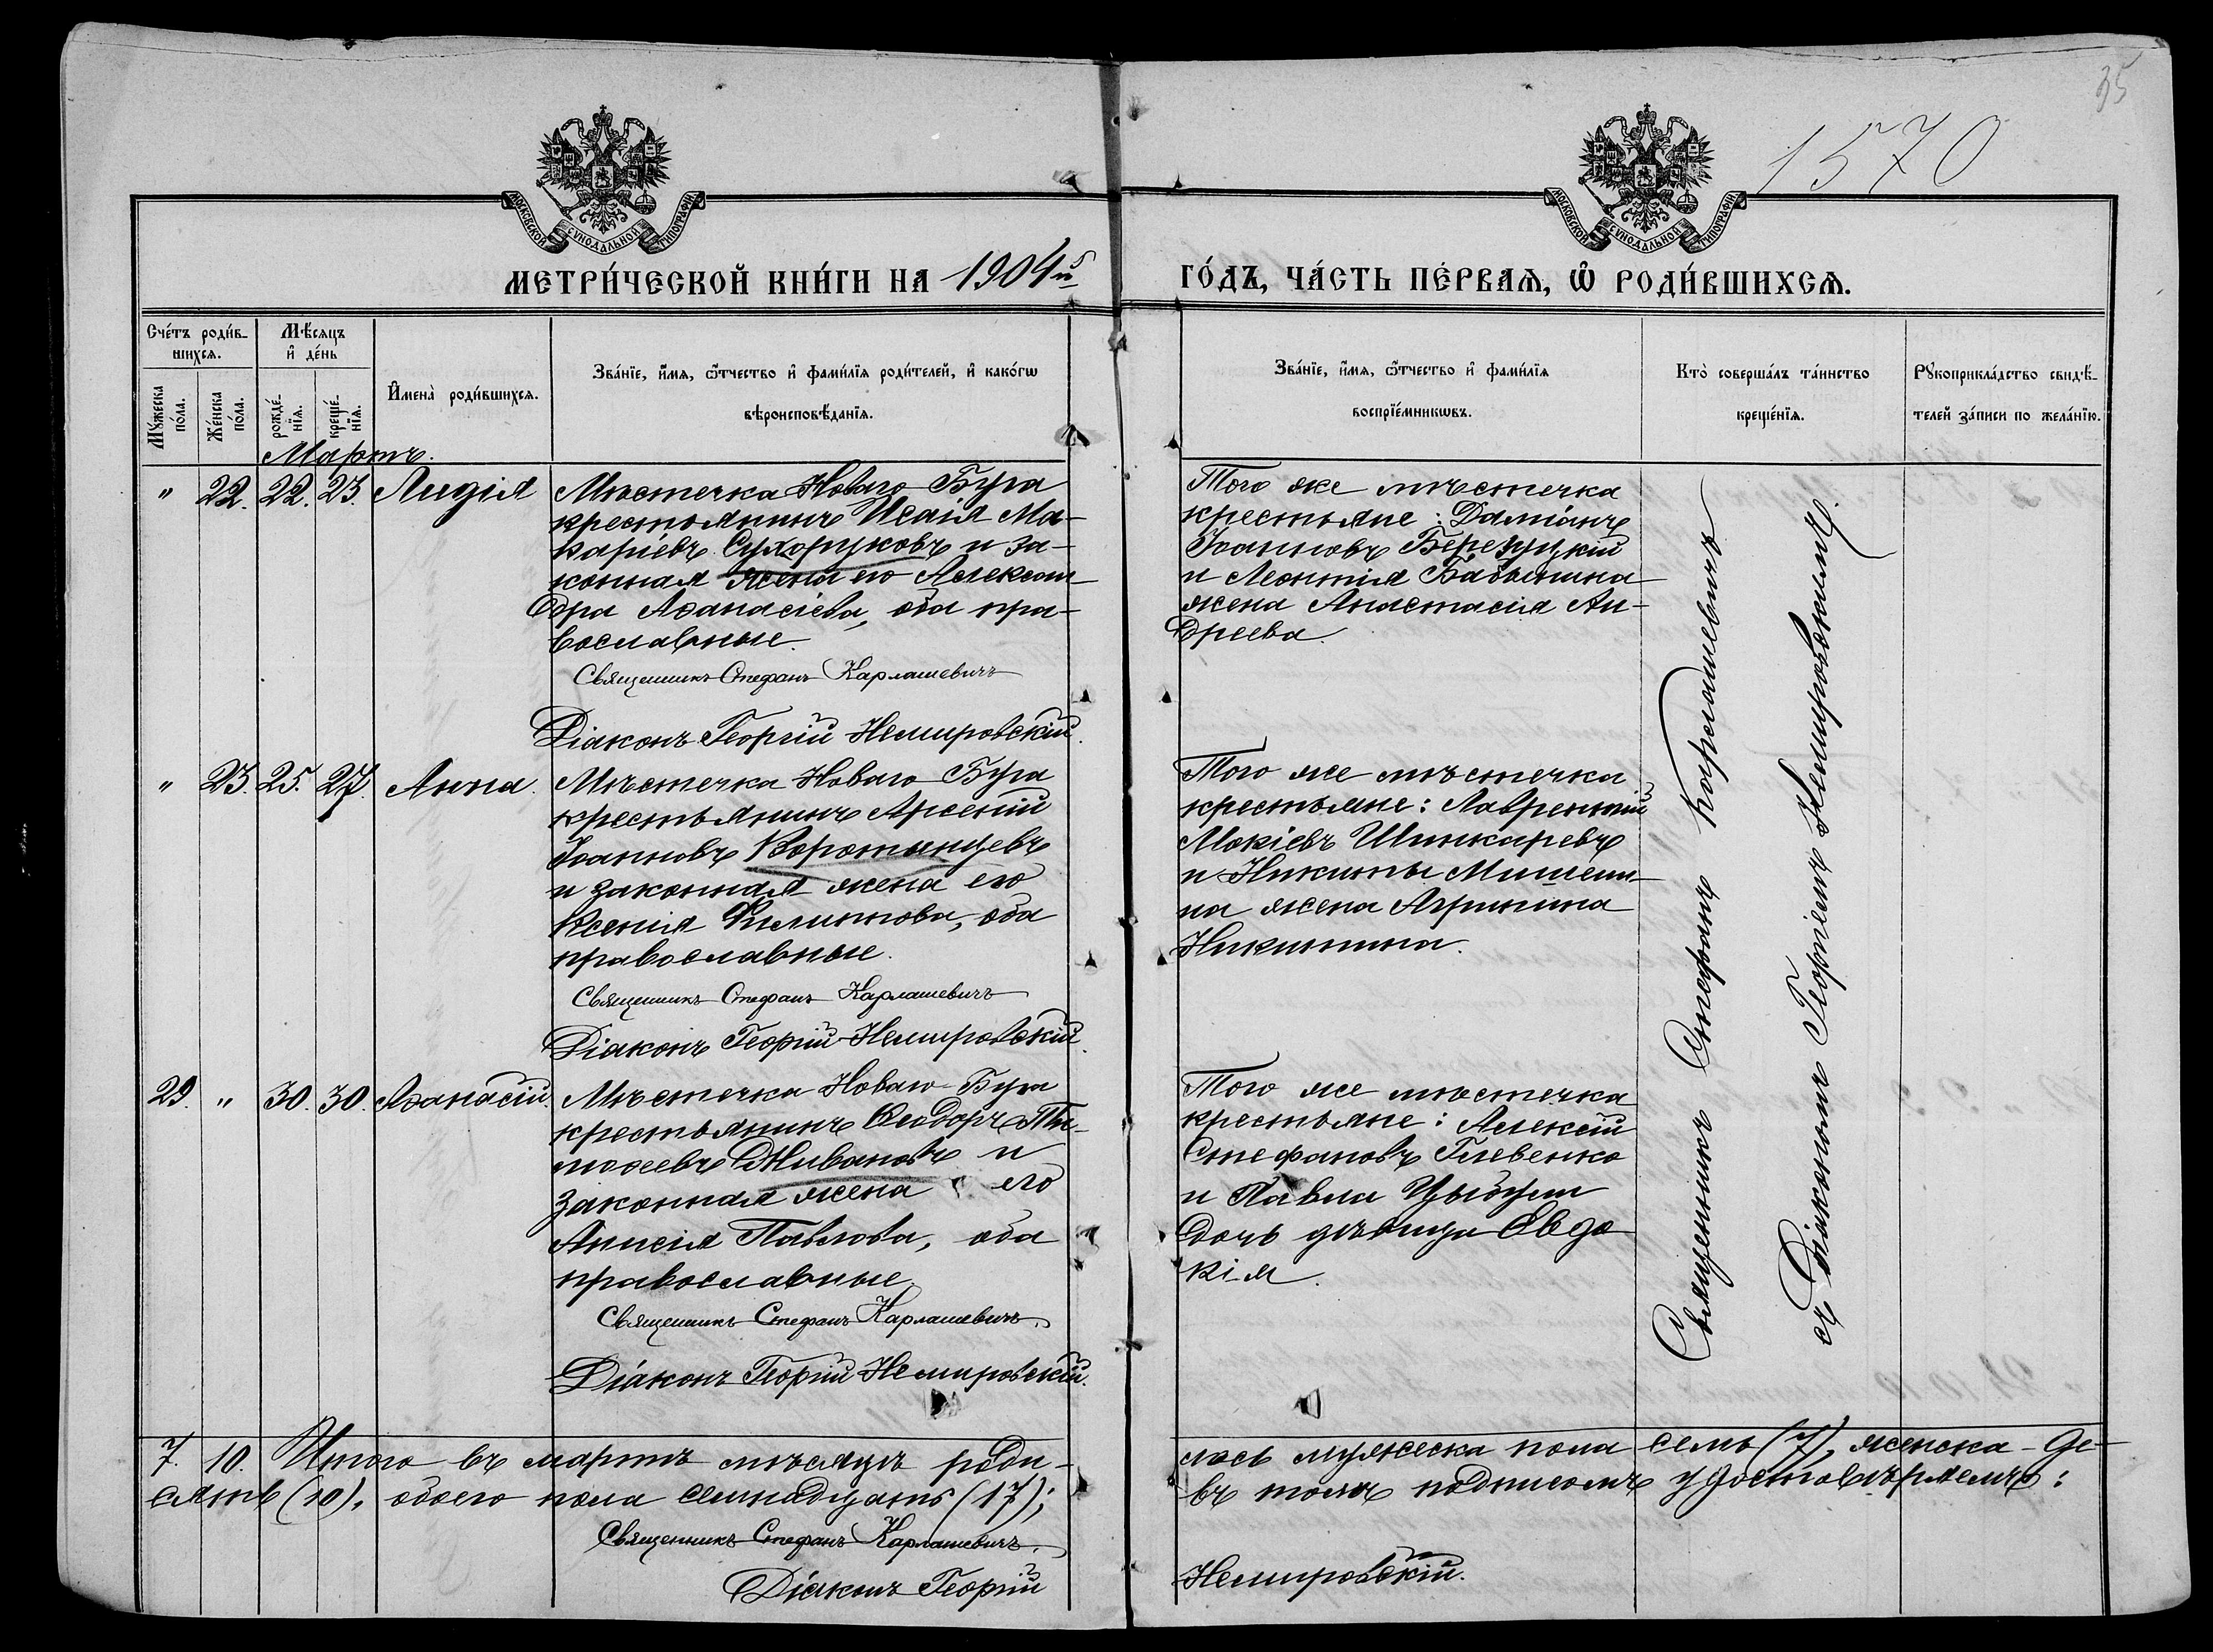 35
1570
МОСКОВСКОЙ СѴНОДАЛЬНОЙ ТИПОГРАФІИ
МОСКОВСКОЙ СѴНОДАЛЬНОЙ ТИПОГРАФІИ
МЕТРИ́ЧЕСКОЙ КНИ́ГИ НА 1904й ГО́ДЪ, ЧА́СТЬ ПЕ́РВАѦ, Ѡ҆ РОДИ́ВШИХСѦ.
Сче́тъ роди́в-
шихсѧ.
Мꙋ́жеска по́ла.
Же́нска по́ла.
Мѣ́сяцъ
и҆ де́нь
рожде́-
нїѧ.
креще́-
нїѧ.
И҆мена̀ роди́вшихсѧ.
Зва́нїе, и҆́мѧ, ѻ҆́тчество и҆ фами́лїѧ роди́телей, и҆ како́гѡ
вѣроисповѣ́данїѧ.
Зва́нїе, и҆́мѧ, ѻ҆́тчество и҆ фами́лїѧ
воспрїе́мникѡвъ.
Кто̀ соверша́лъ та́инство
креще́нїѧ.
Рꙋкоприкла́дство свидѣ́-
телей за́писи по жела́нїю.
Мартъ.
" 22. 22. 23. Лидія
Мѣстечка Новаго Буга
крестьянинъ Исаія Ма-
каріевъ Сухоруковъ и за-
конная жена его Алексан-
дра Аѳанасіева, оба пра-
вославные.
Священникъ Стефанъ Карлашевичъ
Діаконъ Георгій Немировскій.
Того же мѣстечка
крестьяне: Даміанъ
Іоанновъ
и Леонтія Бабынина
жена Анастасія Ан-
дреева.
" 23. 25. 27. Анна.
Мѣстечка Новаго Буга
крестьянинъ Арсеній
Іоанновъ Воротынцевъ
и законная жена его
Ксенія Филиппова, оба
православные.
Священникъ Стефанъ Карлашевичъ
Діаконъ Георгій Немировскій.
Того же мѣстечка
крестьяне: Лаврентій
Мокіевъ Шинкаревъ
и Никиты Мишени-
на жена Агрипина
Никитина.
29. " 30. 30. Аѳанасій.
Мѣстечка Новаго Буга
крестьянинъ Ѳеодоръ Ти-
моѳеевъ и
законная жена его
Анисія Павлова, оба
православные.
Священникъ Стефанъ Карлашевичъ.
Діаконъ Георгій Немировскій.
Того же мѣстечка
крестьяне: Алексій
Стефановъ Глевенко
и Павла Цыбули
дочь дѣвица Евдо
кія.
Священникъ Стефанъ Карлашевичъ
съ Діакономъ Георгіемъ Немировскимъ.
7. 10. Итого въ мартѣ мѣсяцѣ роди-
лось мужеска пола семь (7), женска - де-
сять (10), обоего пола семнадцать (17);
въ томъ подписомъ удостовѣряемъ:
Священникъ Стефанъ Карлашевичъ.
Діаконъ Георгій Немировскій.